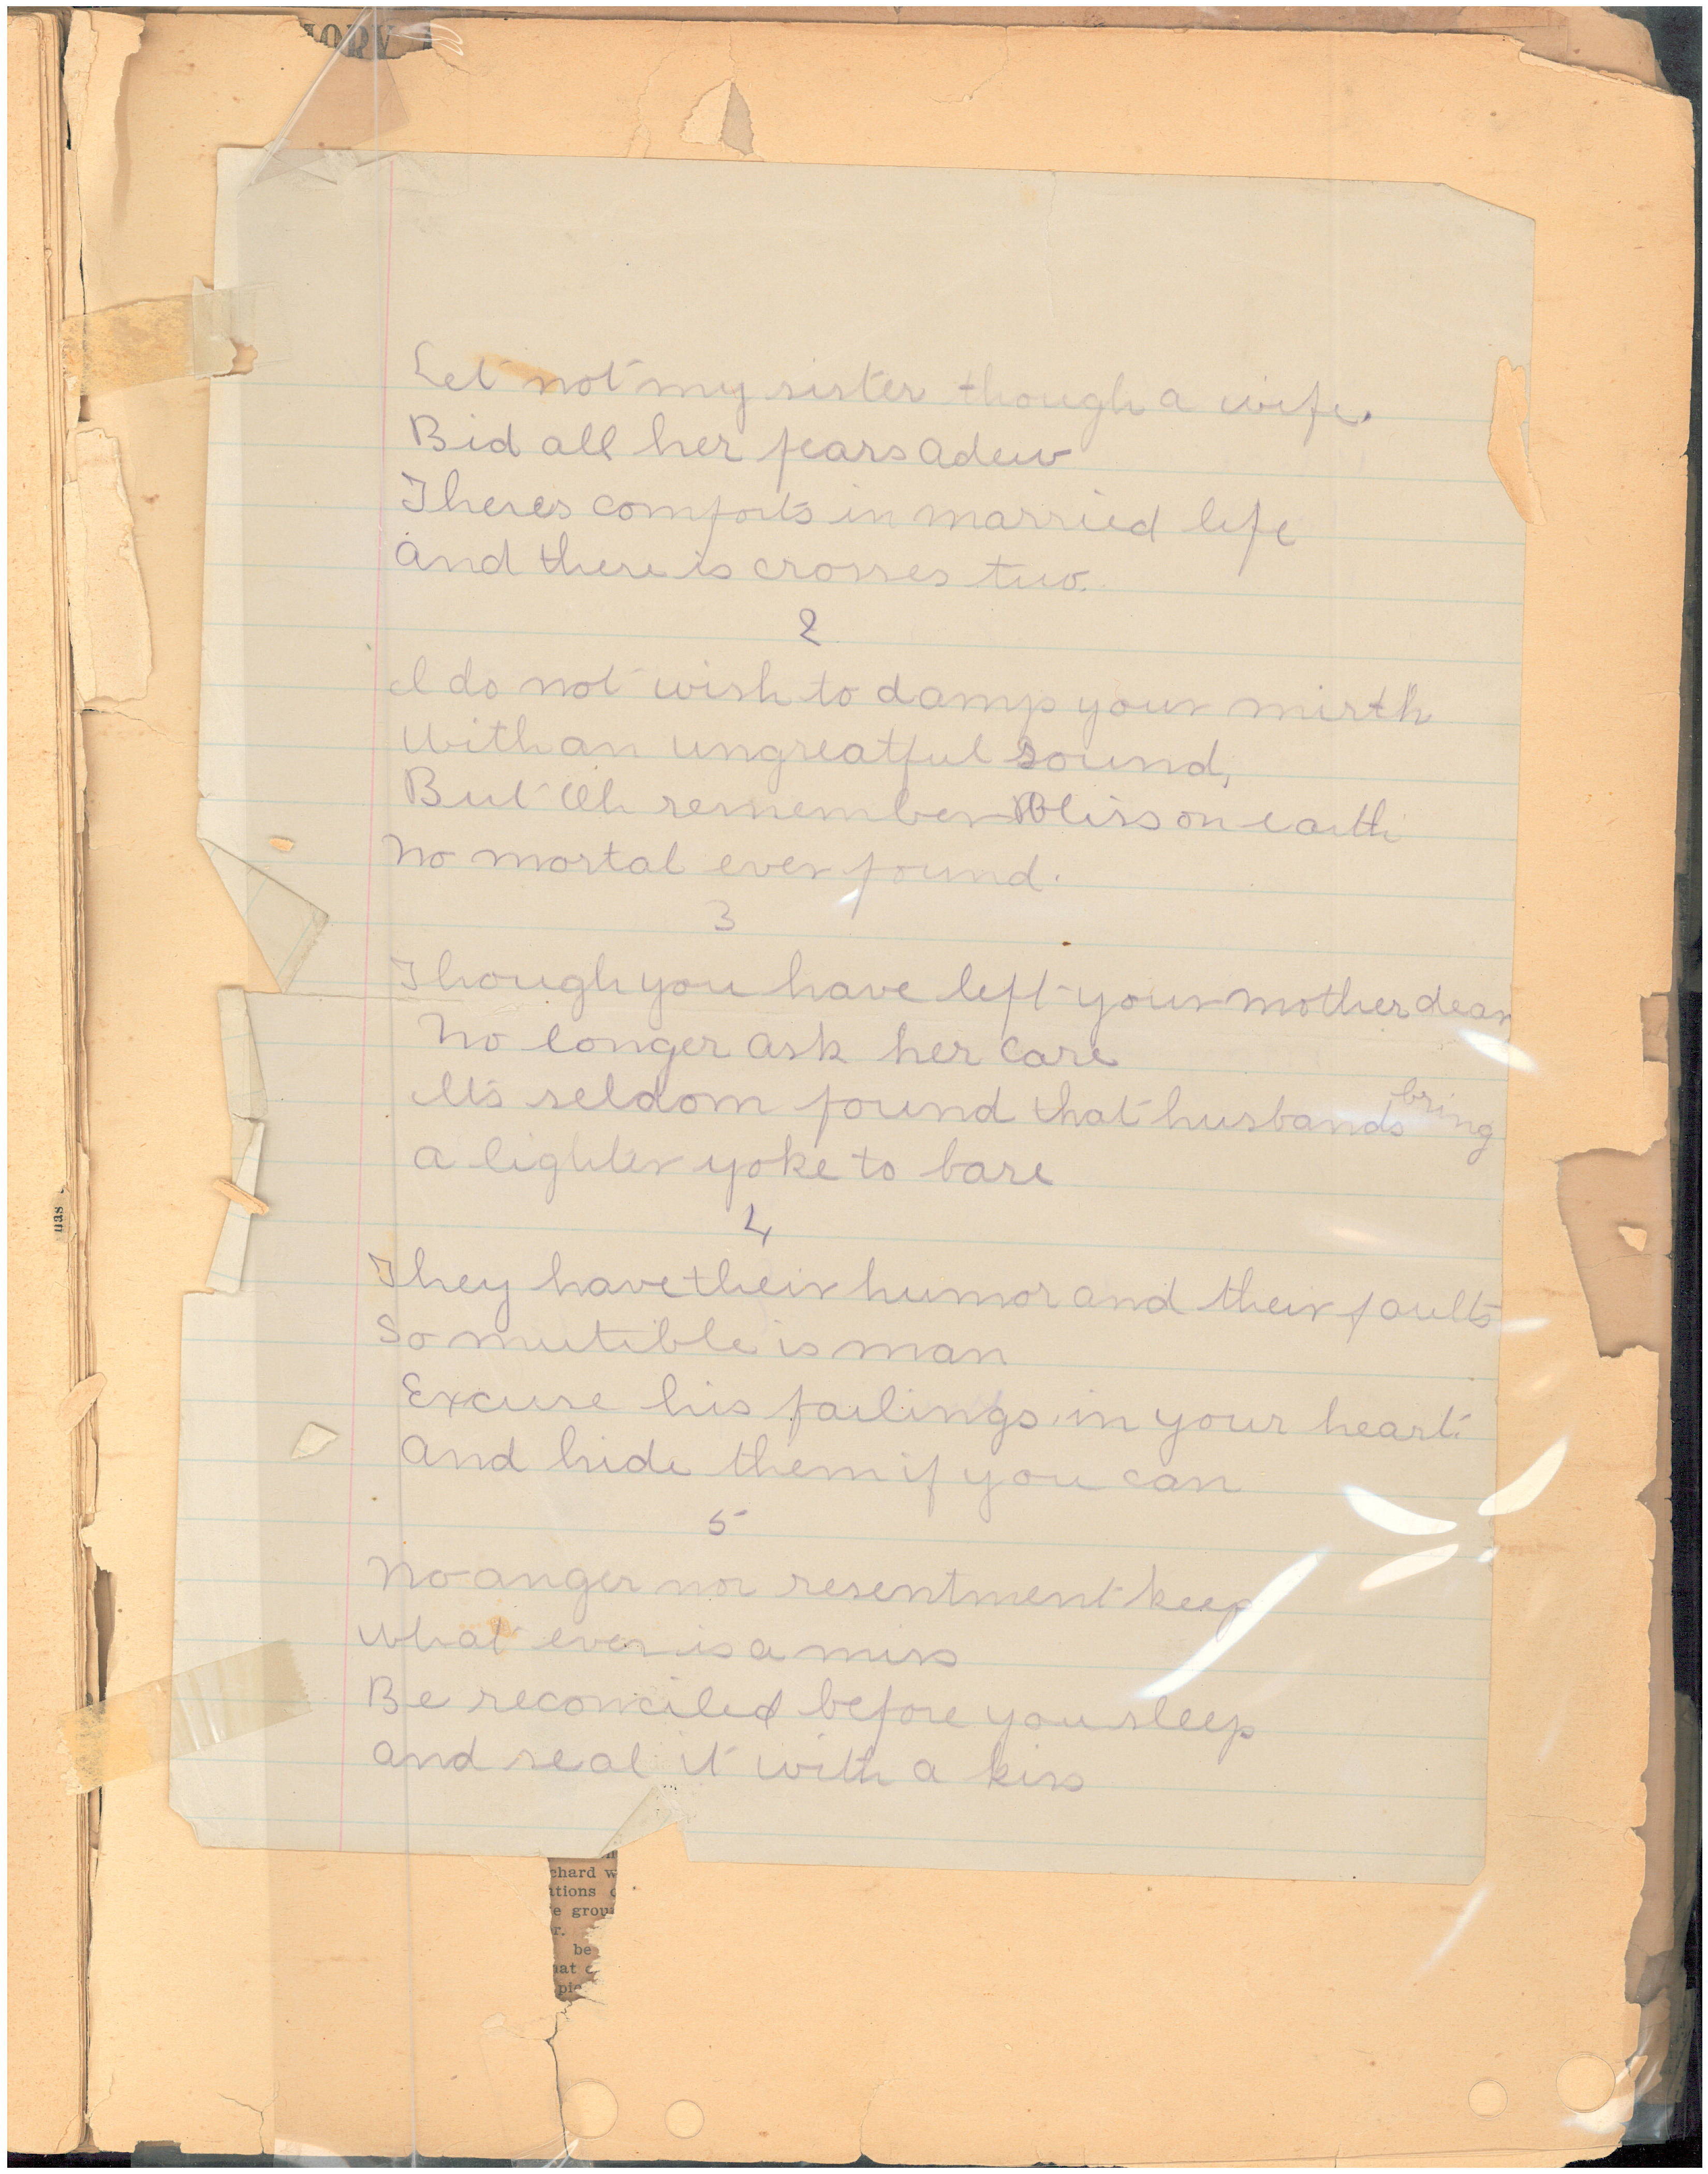 IORY
Let not my sister though a wife.
Bid all her fears adew
Theres comforts in married life
and there is crosses two.
2
I do not wish to damp your mirth
With an ungreatful sound,
But Oh remember Bliss on earth
No mortal ever found.
3
Though you have left your mother dear
No longer ask her care
It's seldom found that husbands bring
a lighter yoke to bare
4
They have their humor and their faults
So mutible is man
Excuse his failings in your heart.
and hide them if you can
5
No anger nor resentment keep
what ever is a miss
Be reconciled before you sleep
and seal it with a kiss
nas
chard w
ations
e grou
r.
be
hat